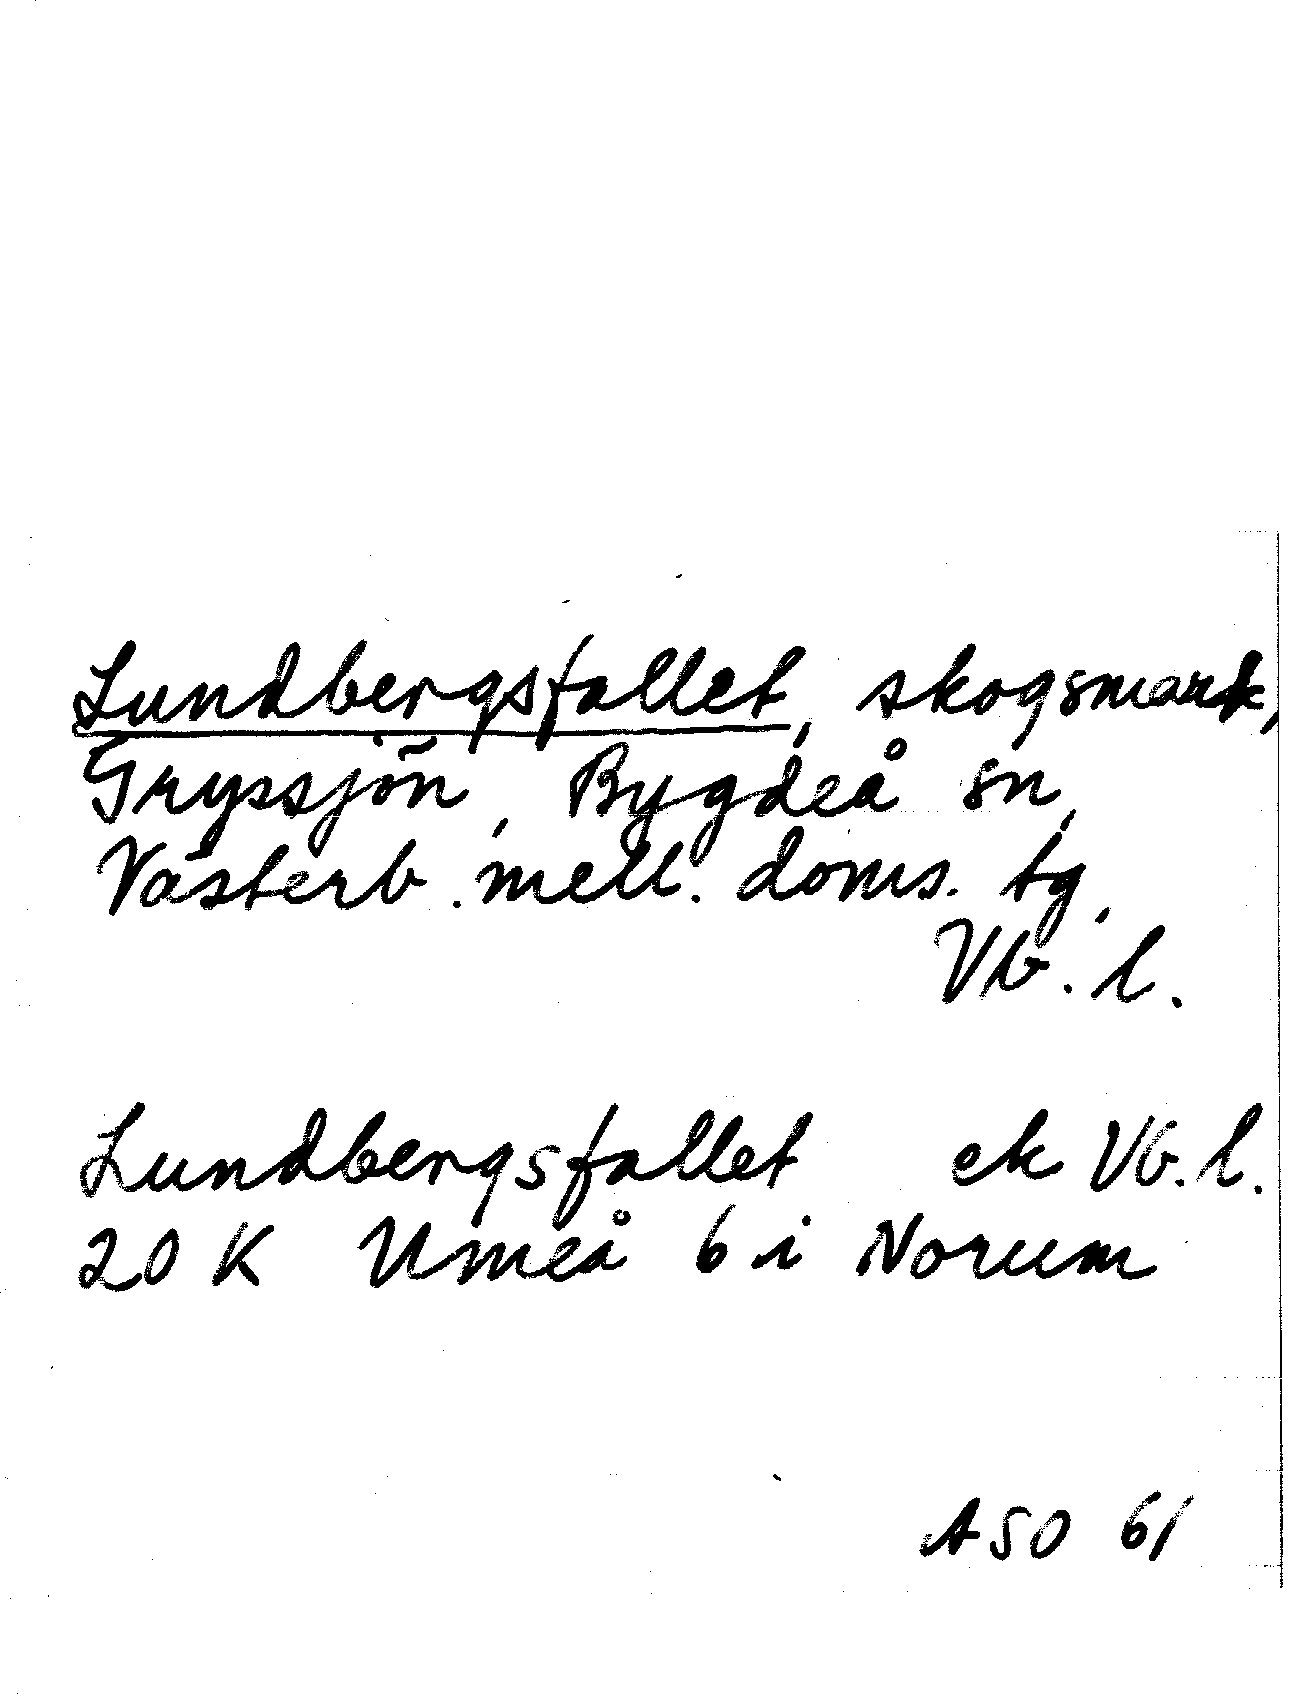 Lundbergsfallet, skogsmark,
Gryssjön, Bygdeå sn,
Västerb. mell. doms. tg,
Vb. l.
Lundbergsfallet ek Vb. l.
20 K Umeå 6 i Norum
ASO 61